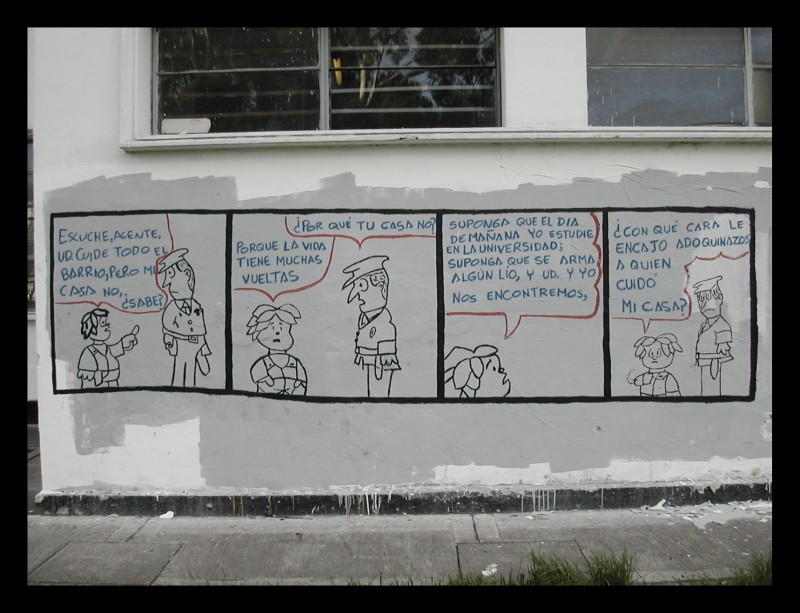 ESCUCHE, AGENTE,
UD. CUIDE TODO EL
BARRIO, PERO MI
CASA NO,
¿SABE?
¿POR QUÉ TU CASA NO?
PORQUE LA VIDA
TIENE MUCHAS
VUELTAS
SUPONGA QUE EL DIA
DE MAÑANA YO ESTUDIE
EN LA UNIVERSIDAD;
SUPONGA QUE SE ARMA
ALGÚN LÍO, Y UD. Y YO
NOS ENCONTREMOS,
¿CON QUÉ CARA LE
ENCAJO ADOQUINAZOS
A QUIEN
CUIDÓ
MI CASA?